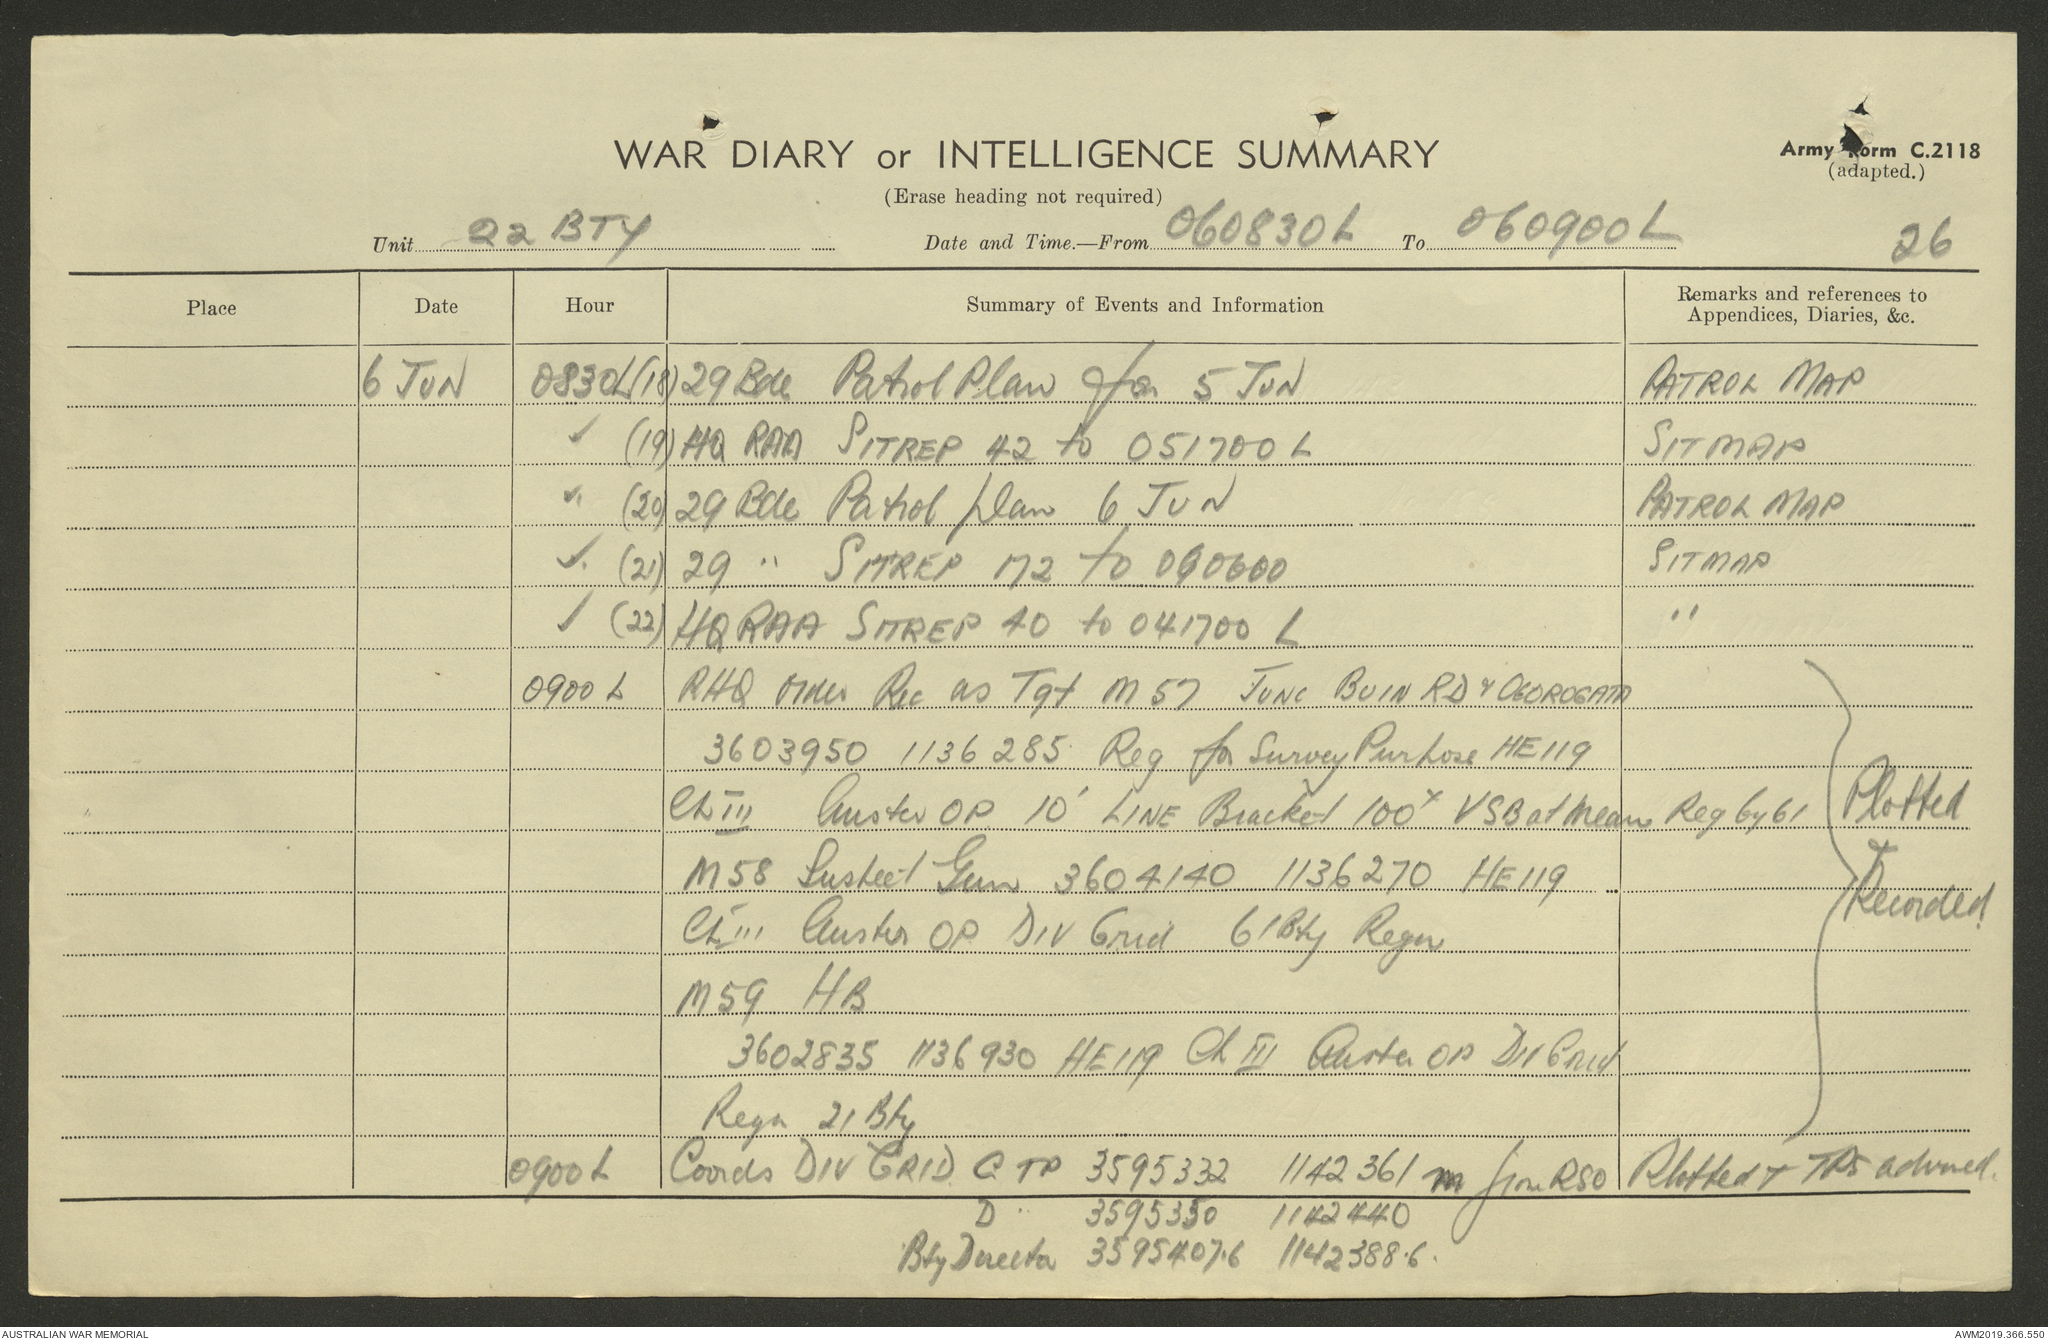 WAR DIARY or INTELLIGENCE SUMMARY
Army Form C.2118
(adapted.)
(Erase heading not required)
Unit 22 BTY Date and Time.—From 060830L To 060900L
26
Place Date Hour Summary of Events and Information Remarks and references to Appendices, Diaries, &c.
6 JUN 0830L (18) 29 Bde Patrol Plan for 5 JUN PATROL MAP
" (19) HQ RAA SITREP 42 to 051700 L SITMAP
" (20) 29 Bde Patrol plan 6 JUN PATROL MAP
" (21) 29 " SITREP 172 to 060600 SITMAP
" (22) HQ RAA SITREP 40 to 041700 L "
0900 L RHQ order Rec as Tgt M 57 JUNC BUIN RD & OGOROGATA
3603950 1136285 Reg for Survey Purpose HE 119
Ch III Auster OP 10' LINE Bracket 100x VSB at Mean Reg by 61 Plotted
M 58 Suspect Gun 3604140 1136270 HE 119 +
Ch III Auster OP DIV Grid 61 Bty Regn Recorded.
M 59 HB
3602835 1136930 HE 119 Ch III Auster OP Div Grid
Regn 21 Bty
0900 L Coords DIV GRID C TP 3595332 1142361 m from RSO Plotted + TPs advised.
D " 3595350 1142440
Bty Director 3595407.6 1142388.6.
AUSTRALIAN WAR MEMORIAL
AWM2019.366.550